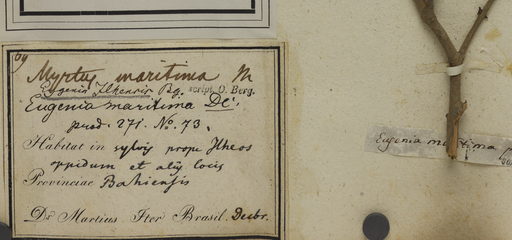 69
Myrtus maritima M
Eugenia Ilhensis Bg. script. O. Berg.
Eugenia maritima DC.
prod. 271. No. 73.
Habitat in sylvis prope Ilheos
oppidum et aliis locis
Provinciae Bahiensis
Dr Martius Iter Brasil. Decbr.
Eugenia maritima